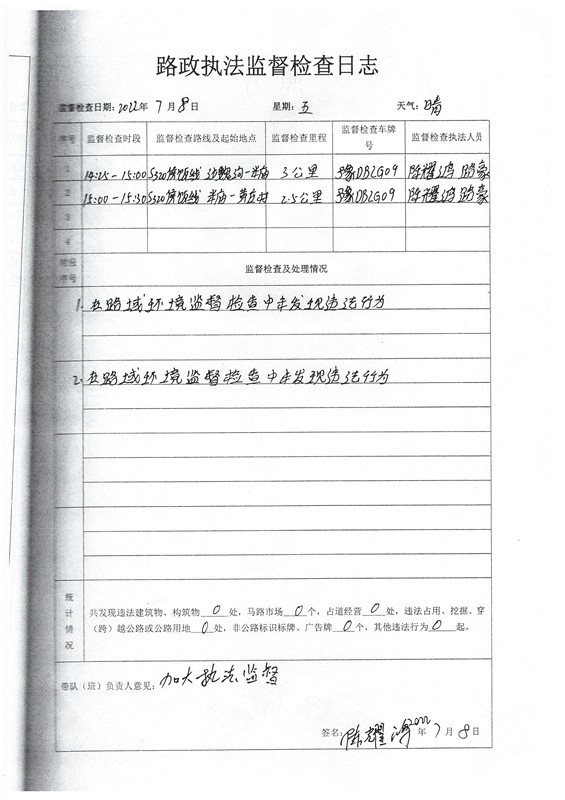 路政执法监督检查日志
监督检查日期：2022年 7月8日 星期：五 天气：晴
序号 监督检查时段 监督检查路线及起始地点 监督检查里程 监督检查车牌号 监督检查执法人员
1 14:25-15:00 S320 3公里 豫DB2G09 陈耀鸿 路豪
2 15:00-15:30 S320 2.5公里 豫DB2G09 陈耀鸿 路豪
3
4
序号 监督检查及处理情况
1. 在路域环境监督检查中未发现违法行为
2. 在路域环境监督检查中未发现违法行为
统计情况
共发现违法建筑物、构筑物 0 处，马路市场 0 个，占道经营 0 处，违法占用、挖掘、穿
（跨）越公路或公路用地 0 处，非公路标识标牌、广告牌 0 个，其他违法行为 0 起。
带队（班）负责人意见：加大执法监督
签名：陈耀鸿 2022年 7月8日